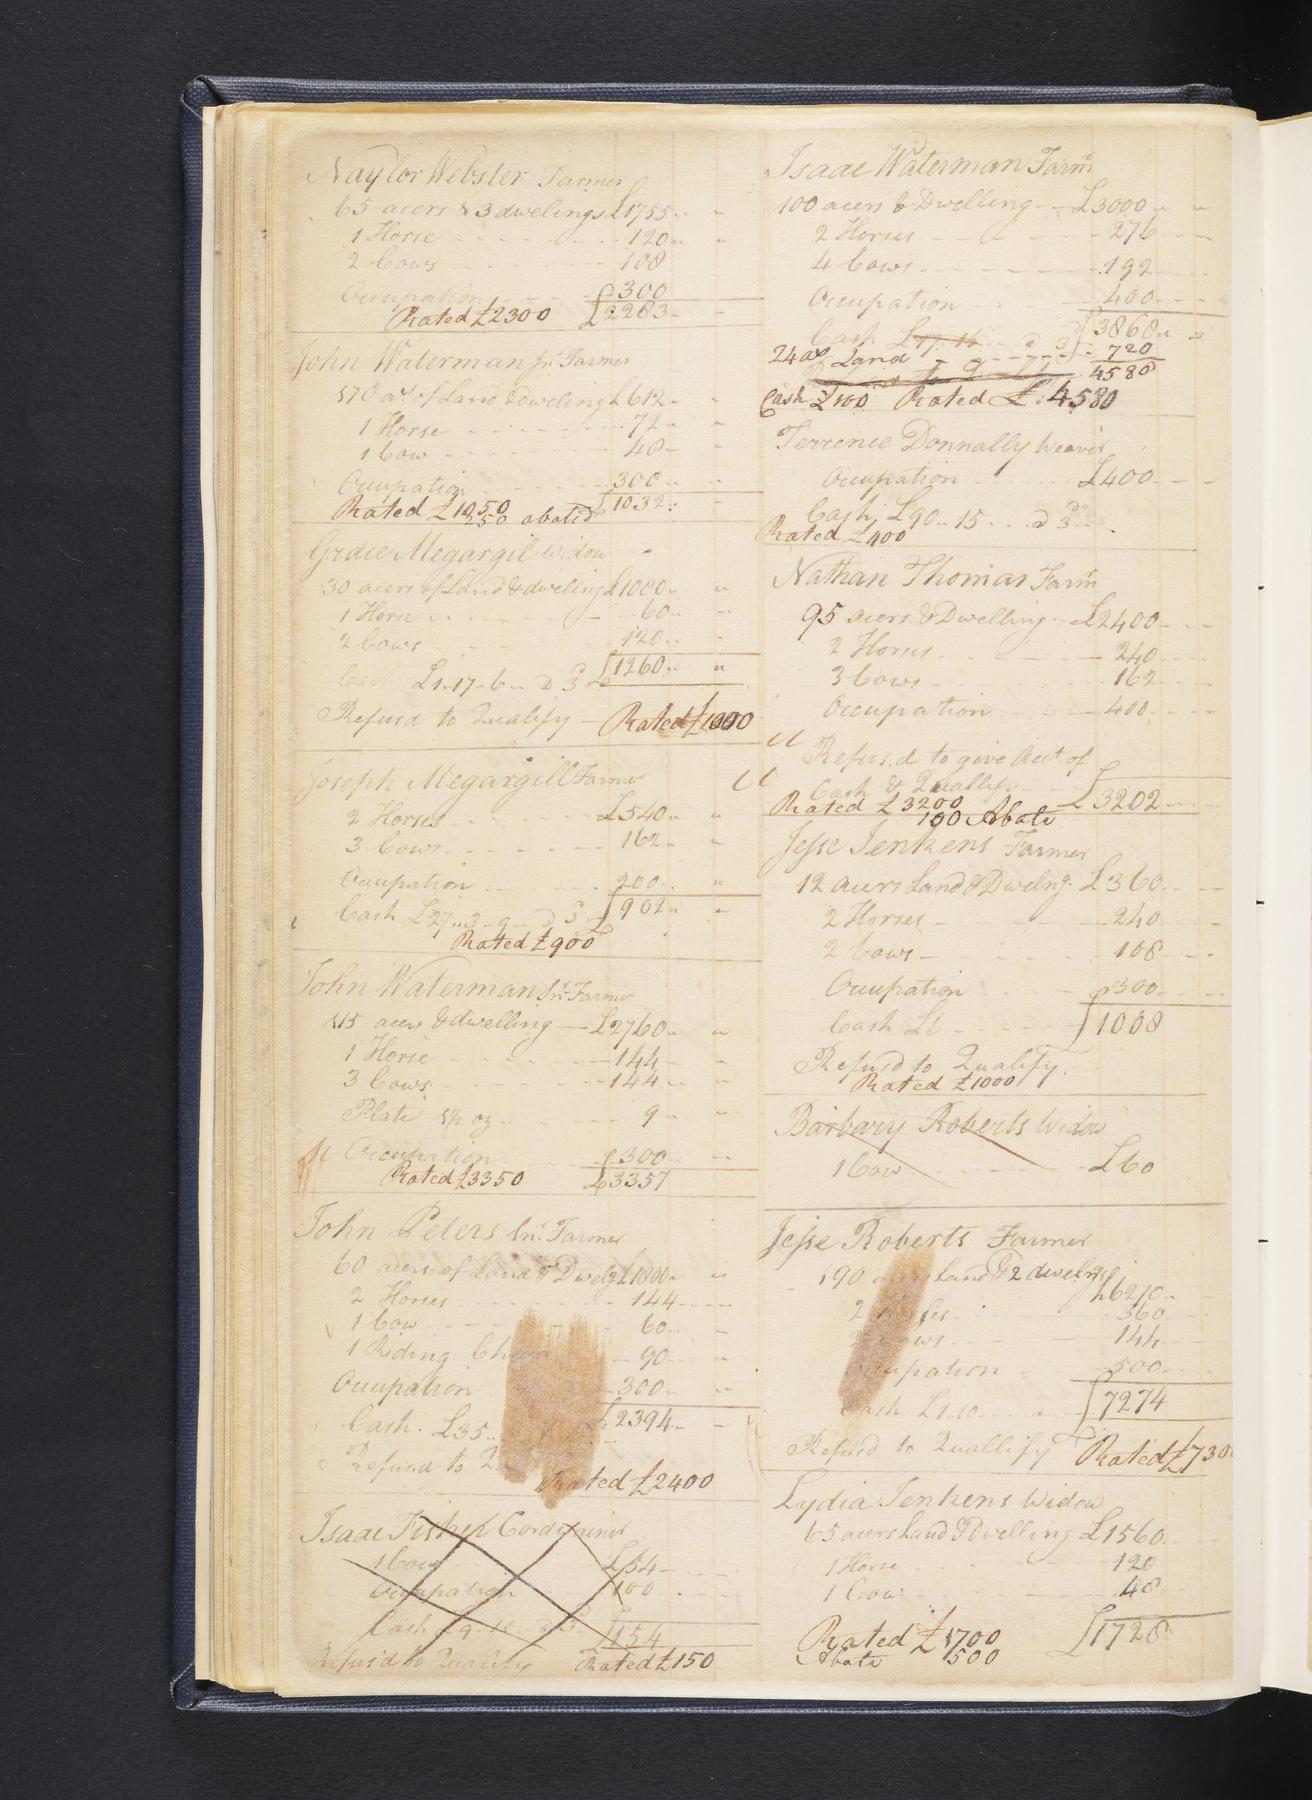 Naylor Webster Farmer
65 acers & 3 dwelings £1755
1 Horse 120
2 Cows 108
Occupation 300
Rated £2300 £2283
John Waterman Jr. Farmer
of Land & dweling £612
1 Horse 72
1 Cow 48
Occupation 300
Rated £1050 £1032
250 abated
Grace Megargil Widow
30 acers of Land & dweling £1080
1 Horse 60
2 Cows 120
£1260
£1-17-6 a 3
Refusd to Qualify Rated £1000
Joseph Megargill Farmer
2 Horses £540
3 Cows 162
Occupation 200
Cash £27..3..9 £902
Rated £900
John Waterman Snr. Farmer
115 acers & dwelling £2760
1 Horse 144
3 Cows 144
Plate oz 9
Occupation 300
Rated £3350 £3357
John Peters Snr. Farmer
60 acers of Land & Dwelg £1800
2 Horses 144
1 Cow 60
1 Riding 90
Occupation 300
Cash £35 £2394
Refusd to
Rated £2400
Isaac Fisher Cordwainer
1 Cow £54
Occupation 100
Cash £154
Refusd to Qualify Rated £150
Isaac Waterman Farmr
100 acers & Dwelling £3000
2 Horses 276
4 Cows 192
Occupation 400
Cash £3868
24 as Land 720
4580
Cash £100 Rated £4580
Terrence Donnally Weaver
Occupation £400
Cash £90..15 a 3
Rated £400
Nathan Thomas Farmr
95 acers & Dwelling £2400
2 Horses 240
3 Cows 162
Occupation 400
Refusd to give Acct. of
Cash & Quallify
Rated £3200 £3202
100 Abate
Jesse Jenkens Farmer
12 acers Land & Dwelng. £360
2 Horses 240
2 Cows 108
Occupation 300
Cash £6 £1008
Refusd to Qualify.
Rated £1000
Barbary Roberts Widow
1 Cow £60
Jesse Roberts Farmer
190 Land & 2 dwelngs
£6270
2 360
144
500
Cash £7274
Refusd to Quallify Rated £730
Lydia Jenkens Widow
65 acers Land & Dwelling £1560
1 Horse 120
1 Cow 48
Rated £1700 £1728
Abate 500